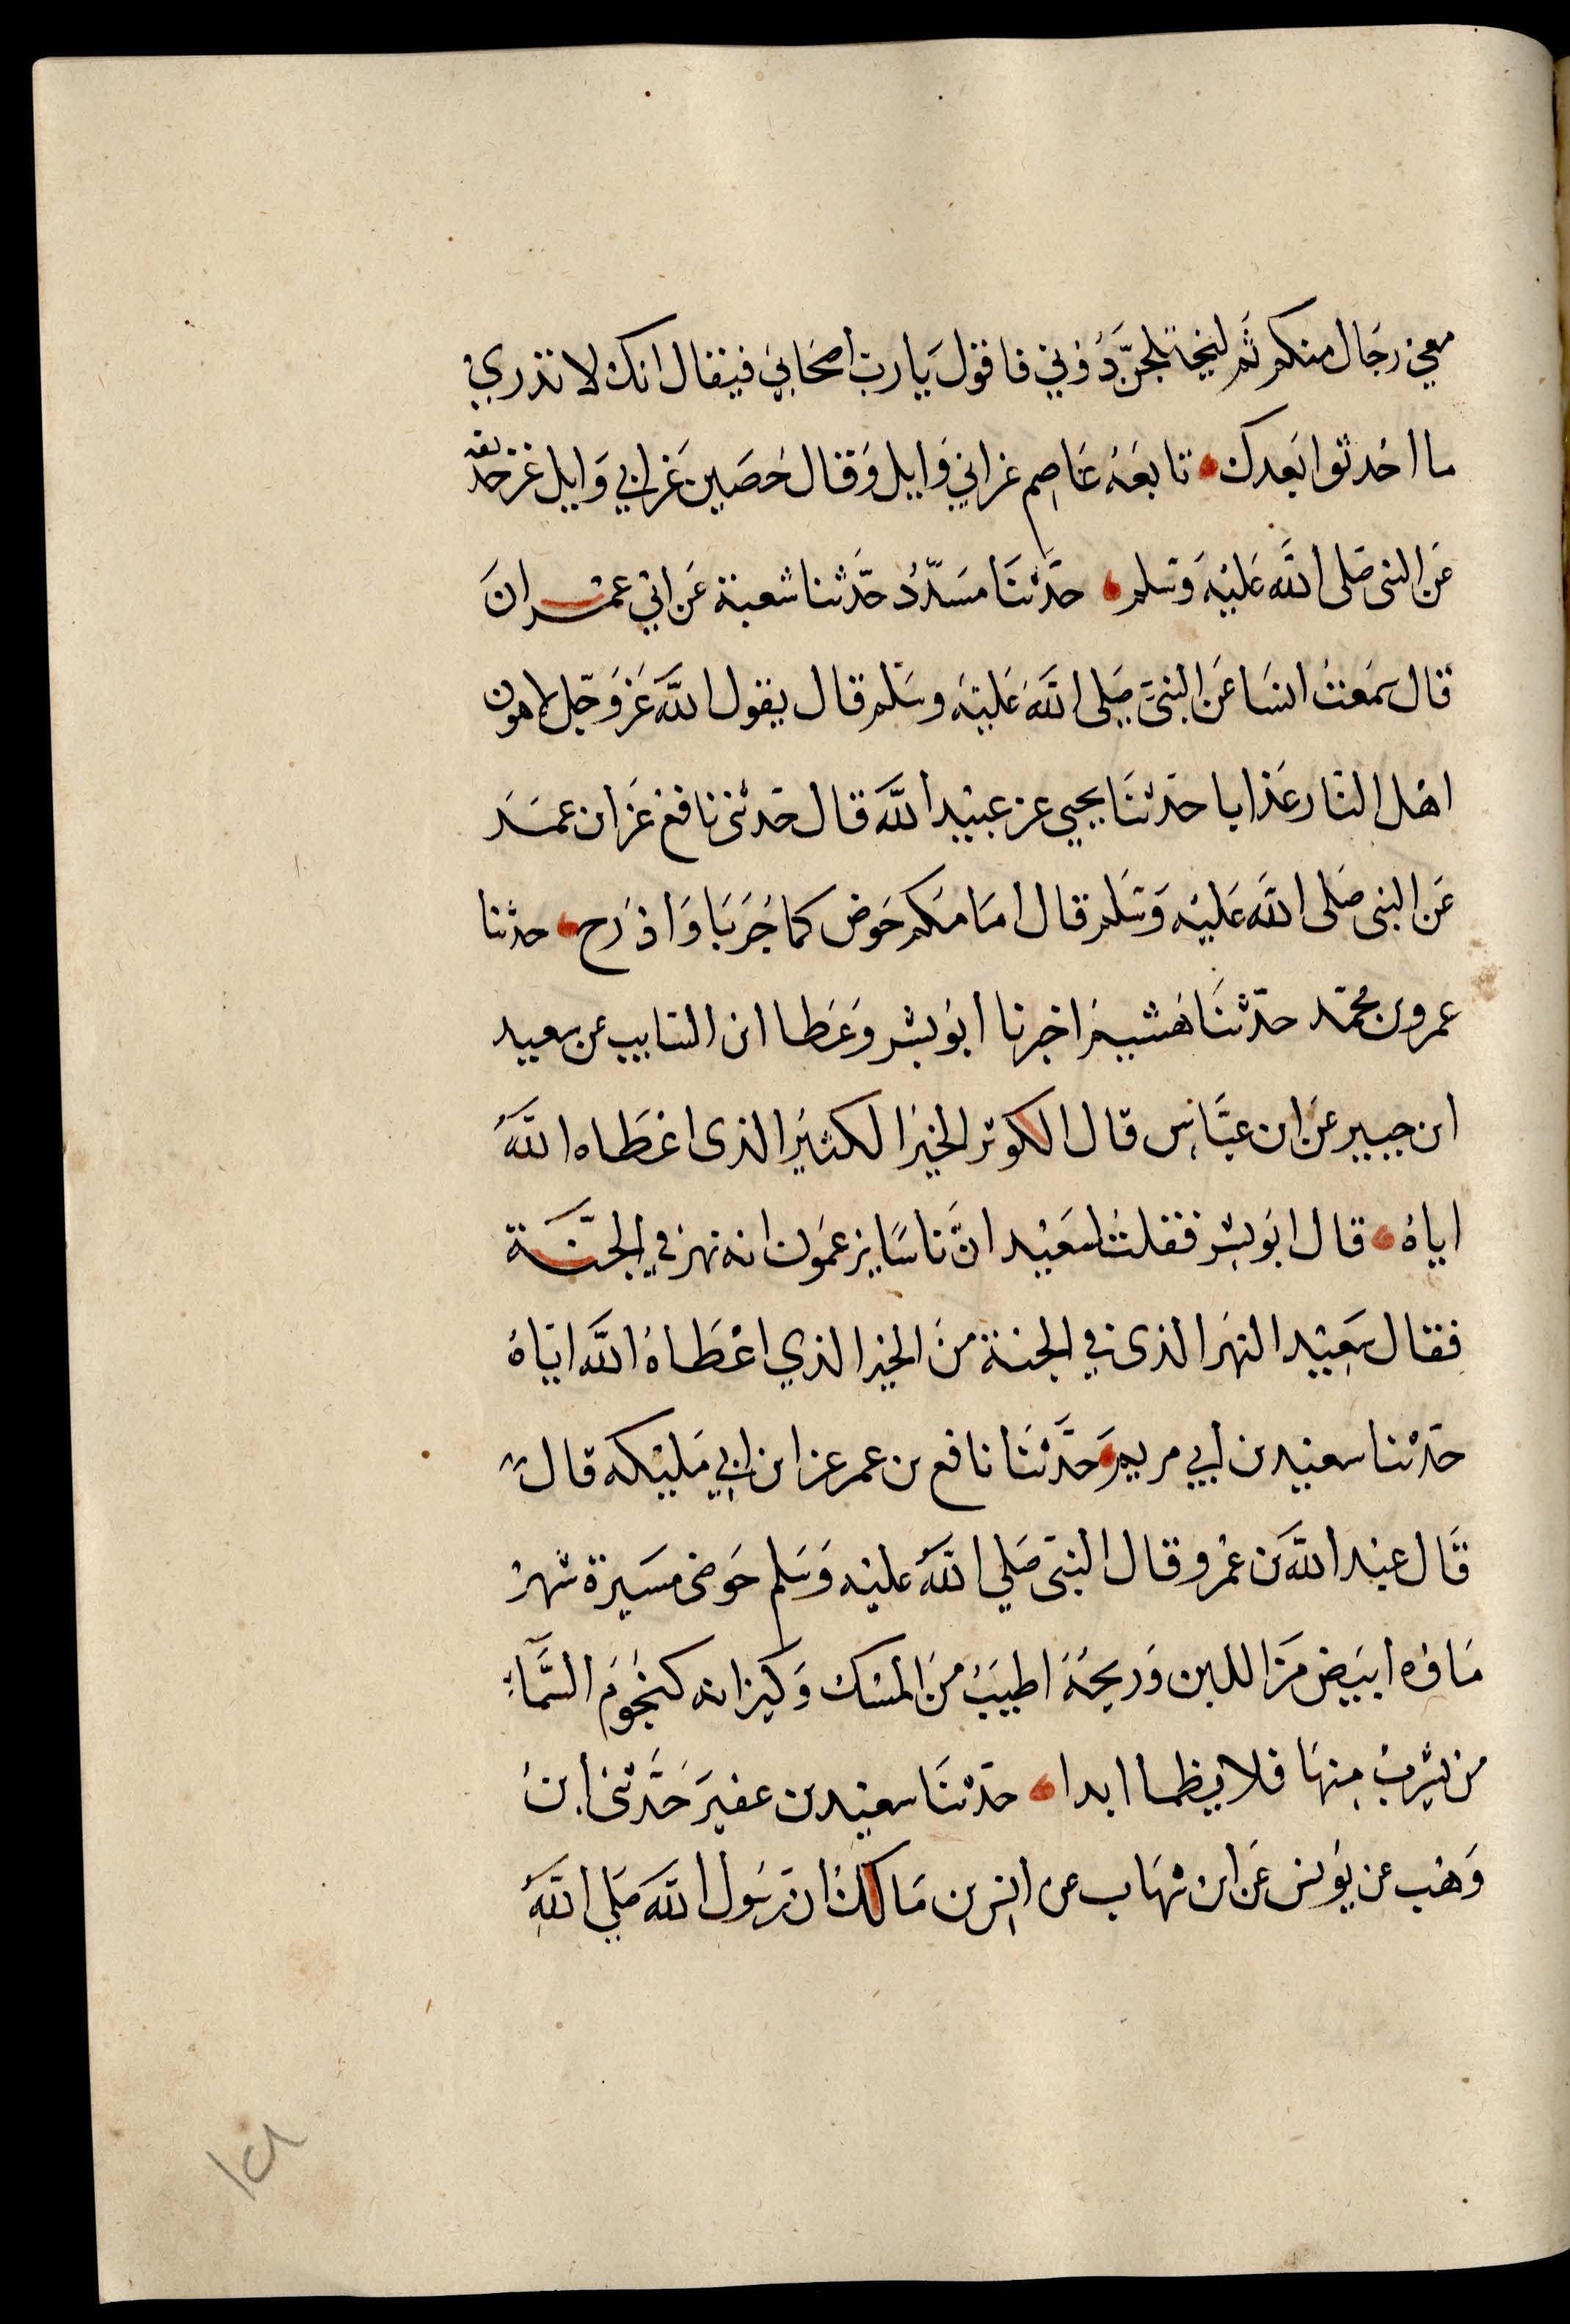 معي رجال منكم ثم ليختلجن دوني فاقول يا رب اصحابي فيقال انك لا تدري
ما احدثوا بعدك تابعه عاصم عن ابي وايل وقال حصين عن ابي وايل عن حذيفة
عن النبي صلى الله عليه وسلم حدثنا مسدد حدثنا شعبة عن ابي عمران
قال سمعت انسا عن النبي صلى الله عليه وسلم قال يقول الله عز وجل لاهون
اهل النار عذابا حدثنا يحيي عن عبيد الله قال حدثني نافع عن ابن عمر
عن النبي صلى الله عليه وسلم قال امامكم حوض كما جربا واذرح حدثنا
عمرو بن محمد حدثنا هشيم اخبرنا ابو بشر وعطا ابن السايب عن سعيد
ابن جبير عن ابن عباس قال الكوثر الخير الكثير الذي اعطاه الله
اياه قال ابو بشر فقلت لسعيد ان ناسا يزعمون انه نهر في الجنة
فقال سعيد النهر الذي في الجنة من الخير الذي اعطاه الله اياه
حدثنا سعيد بن ابي مريم حدثنا نافع بن عمر عن ابن ابي مليكه قال
قال عبد الله بن عمرو قال النبي صلي الله عليه وسلم حوضي مسيرة شهر
ماؤه ابيض من اللبن وريحه اطيب من المسك وكيزانه كنجوم السماء
من يشرب منها فلا يظما ابدا حدثنا سعيد بن عفير حدثني ابن
وهب عن يونس عن ابن شهاب عن انس بن مالك ان رسول الله صلي الله